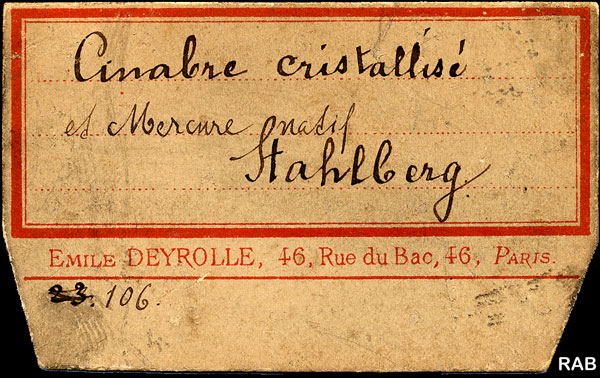 Cinabre cristallisé
et Mercure natif
Stahlberg
EMILE DEYROLLE, 46, Rue du Bac, 46, PARIS.
23. 106.
RAB